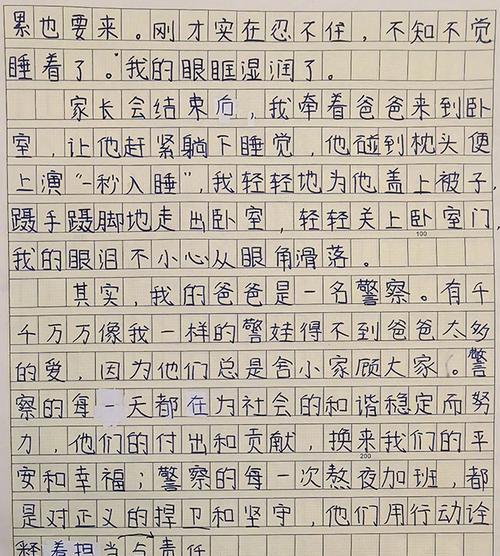 累也要来。刚才实在忍不住，不知不觉
睡着了。”我的眼眶湿润了。
家长会结束后，我牵着爸爸来到卧
室，让他赶紧躺下睡觉，他碰到枕头便
上演“一秒入睡”，我轻轻地为他盖上被子，
蹑手蹑脚地走出卧室，轻轻关上卧室门，
100
我的眼泪不小心从眼角滑落。
其实，我的爸爸是一名警察。有千
千万万像我一样的警娃得不到爸爸太多
的爱，因为他们总是舍小家顾大家。警
察的每一天都在为社会的和谐稳定而努
力，他们的付出和贡献，换来我们的平
200
安和幸福；警察的每一次熬夜加班，都
是对正义的捍卫和坚守，他们用行动诠
释着担当与责任